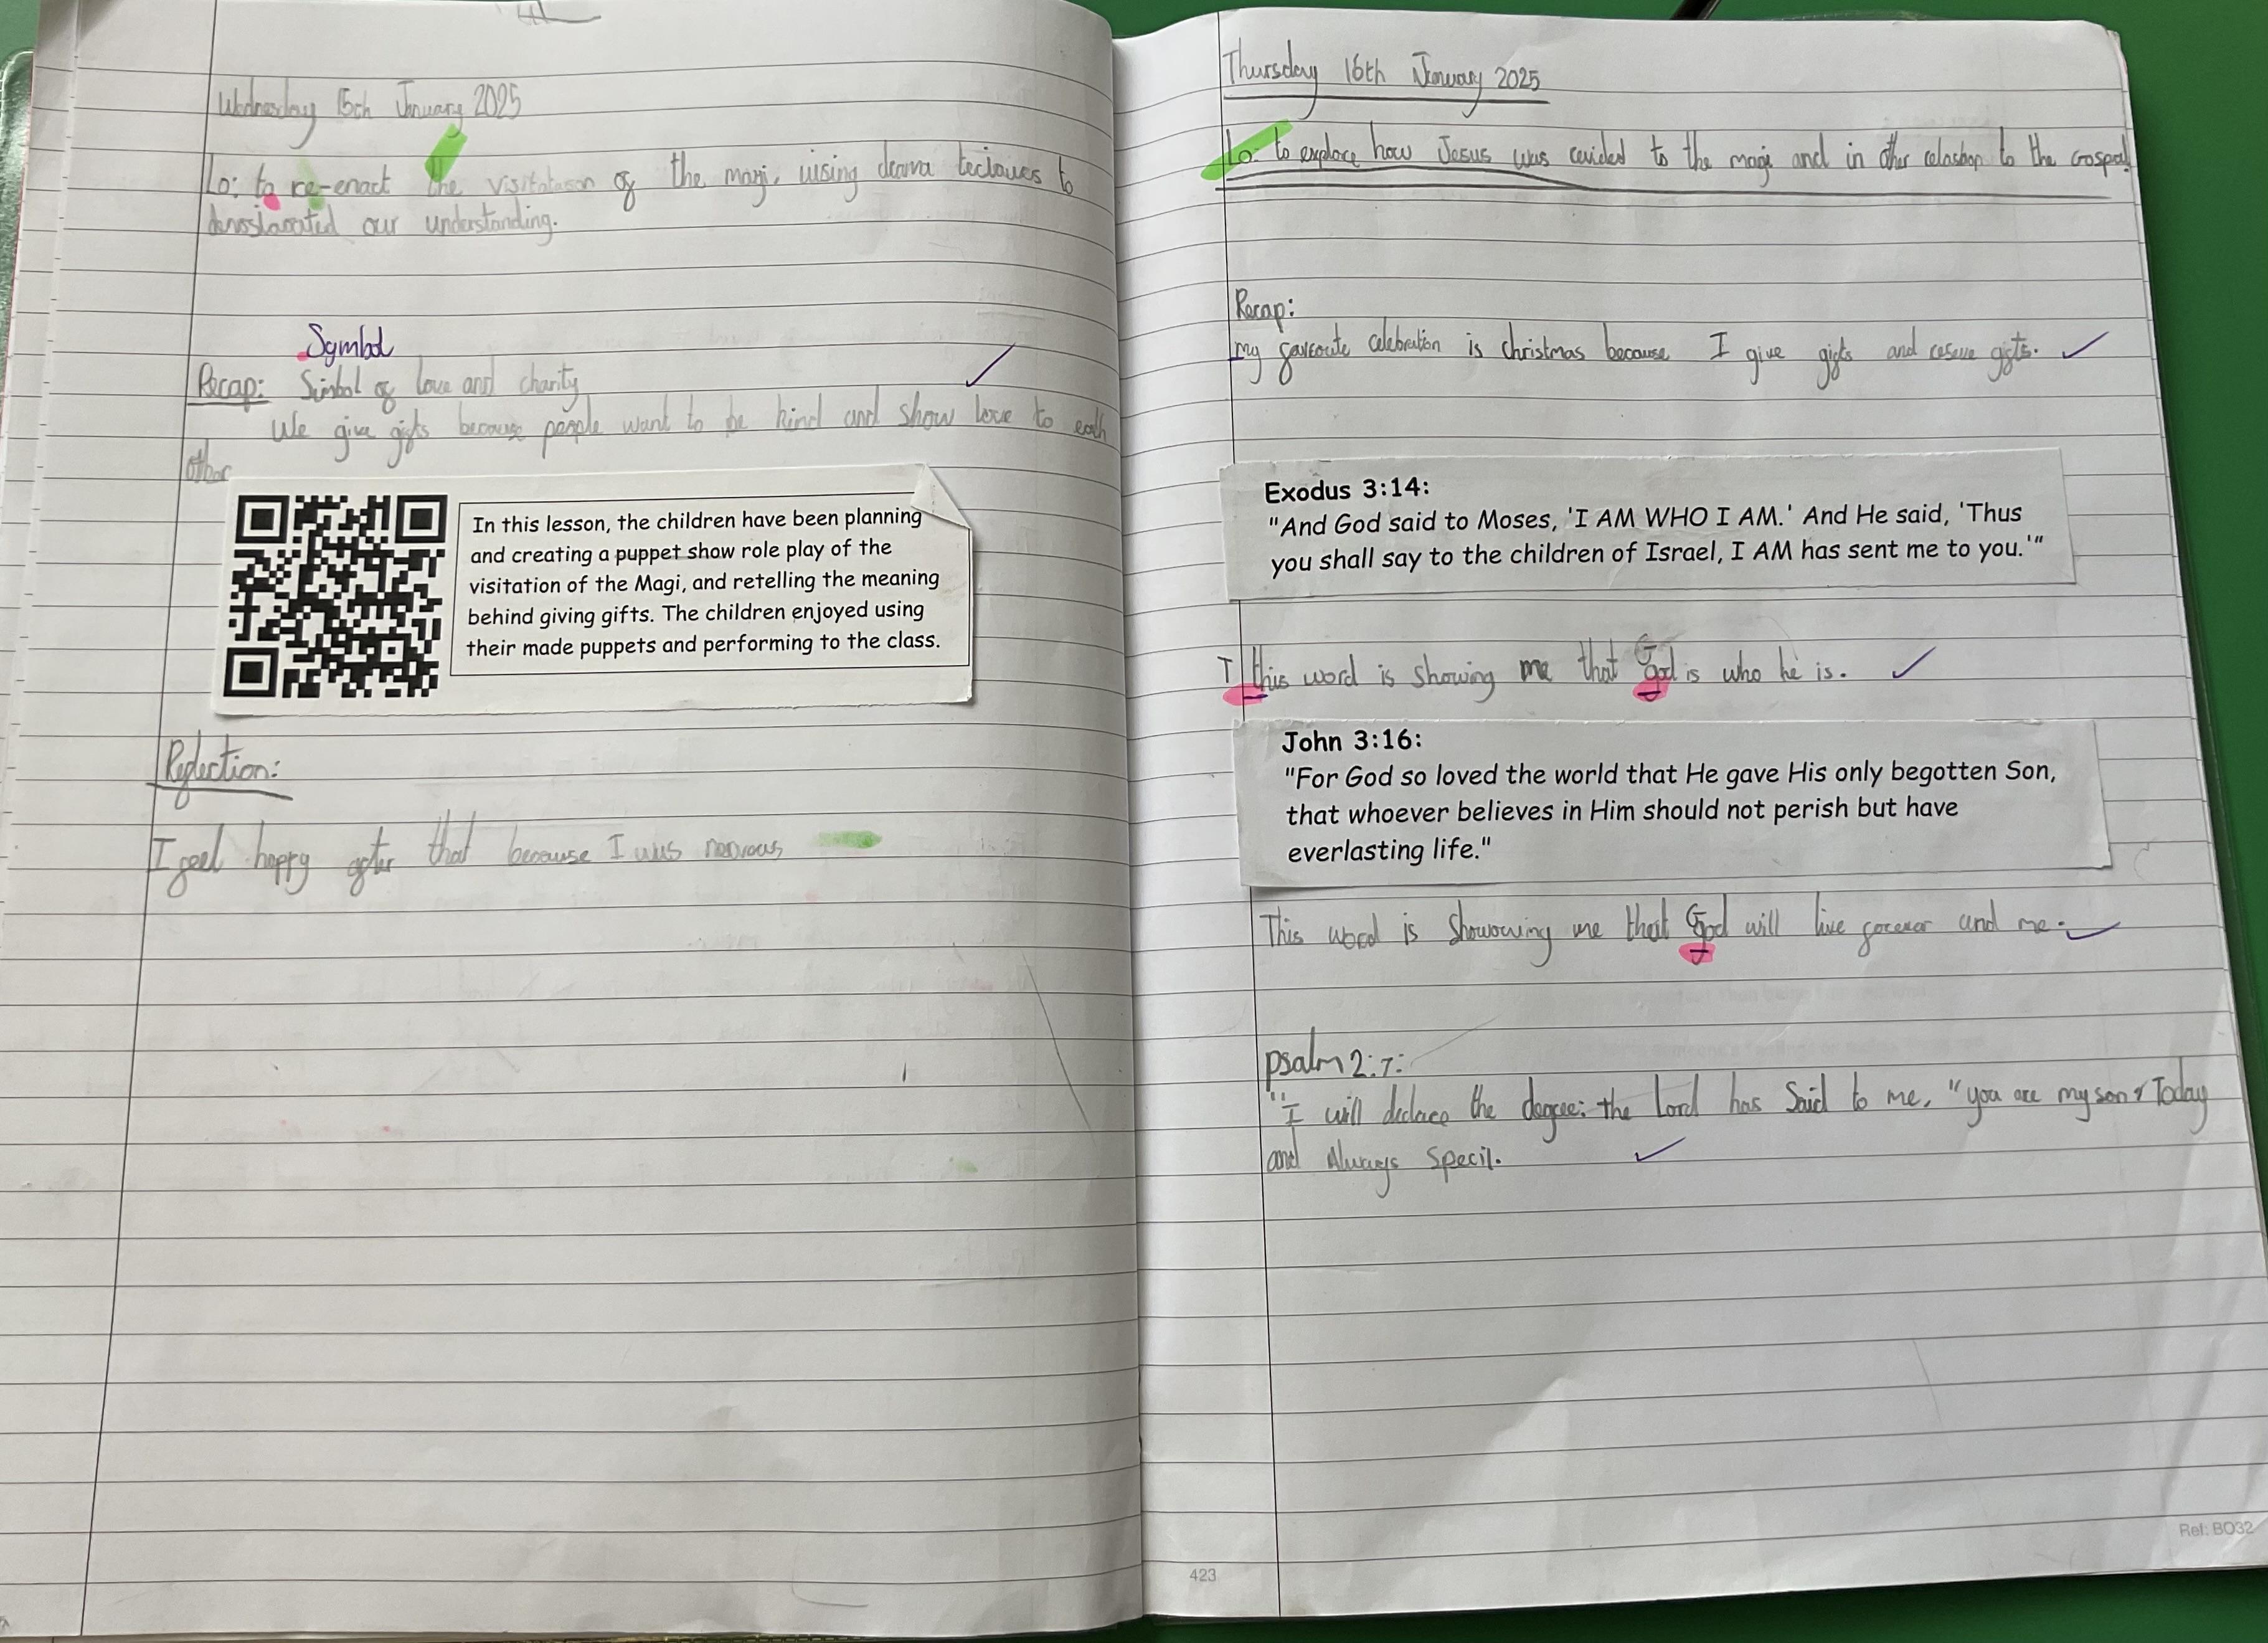 Wednesday 15th January 2025
Lo: to re-enact the visitatason of the magi, uising drama
our understanding.
Symbol
Recap: Simbol of love and charity
We give gifts because people want to be kind and show love to each
other
In this lesson, the children have been planning
and creating a puppet show role play of the
visitation of the Magi, and retelling the meaning
behind giving gifts. The children enjoyed using
their made puppets and performing to the class.
Reflection:
I feel happy after that because I was nervous
Thursday 16th January 2025
Lo: to explore how Jesus was to the magi and in other to the Gospel
Recap:
my celebration is christmas because I give gifts and reseve gifts.
Exodus 3:14:
"And God said to Moses, 'I AM WHO I AM.' And He said, 'Thus
you shall say to the children of Israel, I AM has sent me to you.'"
T this word is showing me that God is who he is.
John 3:16:
"For God so loved the world that He gave His only begotten Son,
that whoever believes in Him should not perish but have
everlasting life."
This word is showowing me that God will live forever and me.
psalm 2:7:
"I will declare the degree: the Lord has Said to me, "you are my son, Today
and Always specil.
423
Ref: BO32